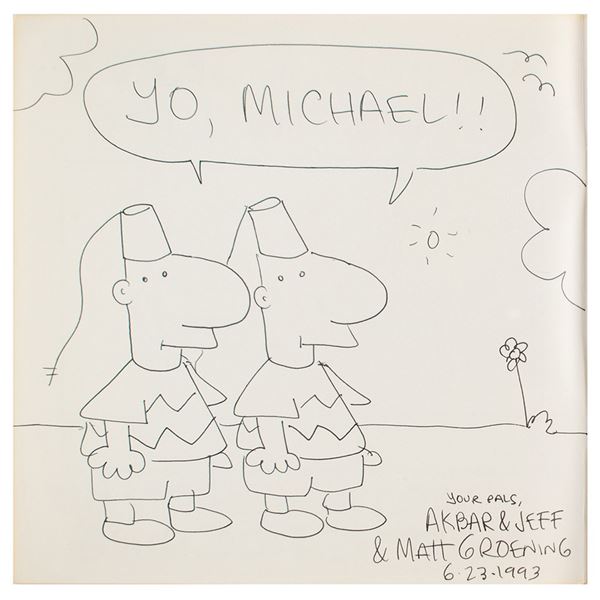 YO, MICHAEL!!
YOUR PALS,
AKBAR & JEFF
& MATT GROENING
6·23·1993